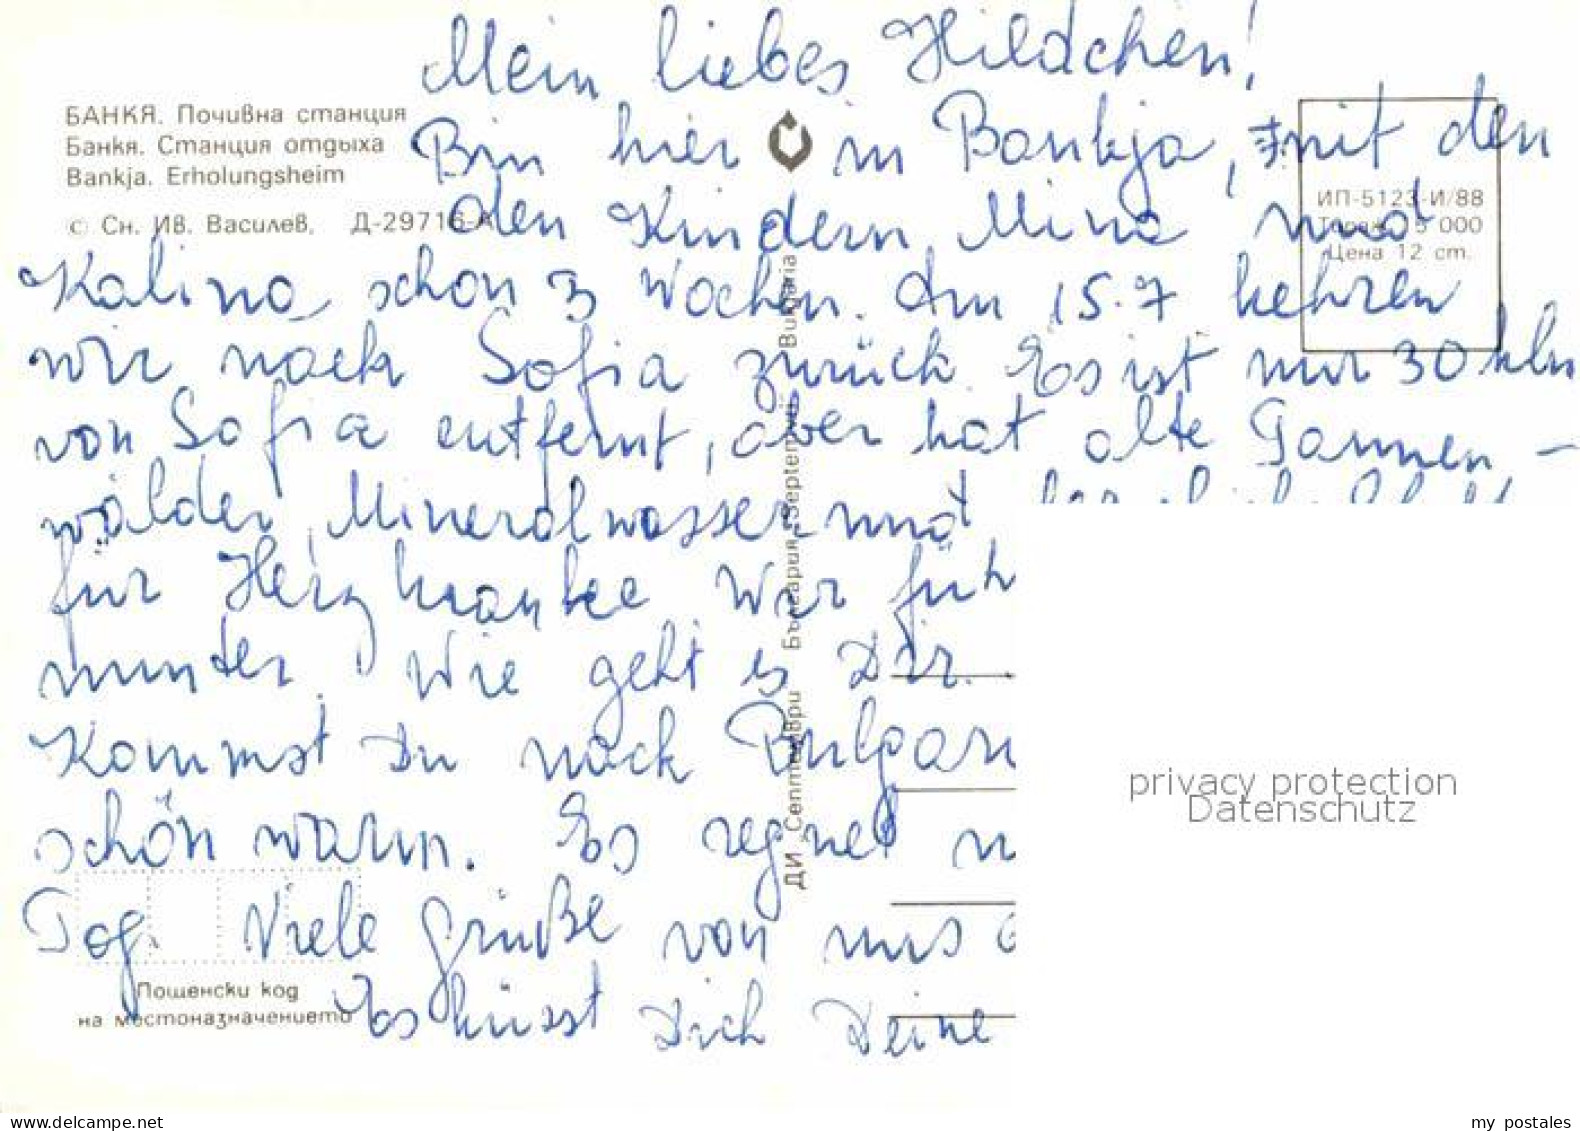 Mein liebes Hildchen!
БАНКЯ. Почивна станция
Банкя. Станция отдыха
Bankja. Erholungsheim
© Сн. Ив. Василев, Д-29716-А
Bin hier in Bankja, mit den
den Kindern Mina und
Kalina, schon 3 Wochen. Am 15.7 kehren
wir nach Sofia zurück. Es ist nur 30 klm
von Sofia entfernt, aber hat alte Tannen-
wälder, Mineralwasser und
für Herzkranke. Wir füh
munter. Wie geht es Dir.
Kommst Du nach Bulgari
schön warm. Es regnet
Tag. Viele Grüße von uns
Es küsst Dich Deine
ИП-5123-И/88
Тираж 15 000
Цена 12 ст.
ДИ „Септември" България „Septemvri" Bulgaria
Пощенски код
на местоназначението
privacy protection
Datenschutz
www.delcampe.net
my_postales